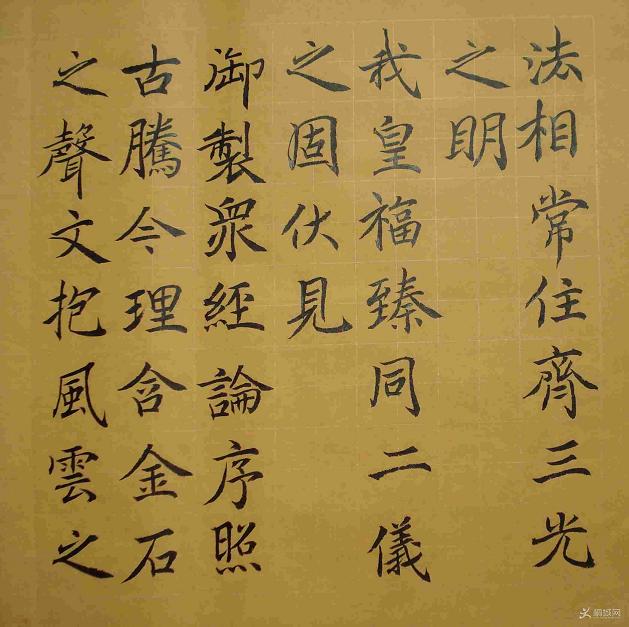 法相常住齊三光
之明
我皇福臻同二儀
之固伏見
御製衆經論序照
古騰今理含金石
之聲文抱風雲之